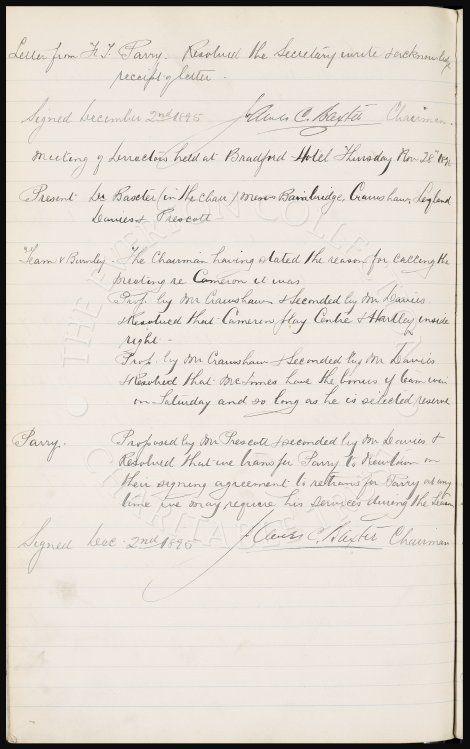 Letter from F. T. Parry. Resolved the Secretary write & acknowledge
receipt of letter.
Signed December 2nd 1895 James C. Baxter Chairman
Meeting of Directors held at Bradford Hotel Thursday Nov 28th 1895
Present Dr Baxter (in the chair) Messrs Bainbridge, Crawshaw, Leyland
Davies & Prescott
Team v Burnley. The Chairman having stated the reason for calling the
meeting re Cameron it was
Prop. by Mr Crawshaw & seconded by Mr Davies
& Resolved that Cameron play Centre & Hartley inside
right.
Prop. by Mr Crawshaw & seconded by Mr Davies
& Resolved that McInnes have the bonus if team win
on Saturday and so long as he is selected reserve
Parry. Proposed by Mr Prescott & seconded by Mr Davies &
Resolved that we transfer Parry to Newtown on
their signing agreement to retransfer Parry at any
time we may require his services during the season
Signed Dec. 2nd 1895 James C. Baxter Chairman
THE EVERTON COLLECTION
CHARITABLE